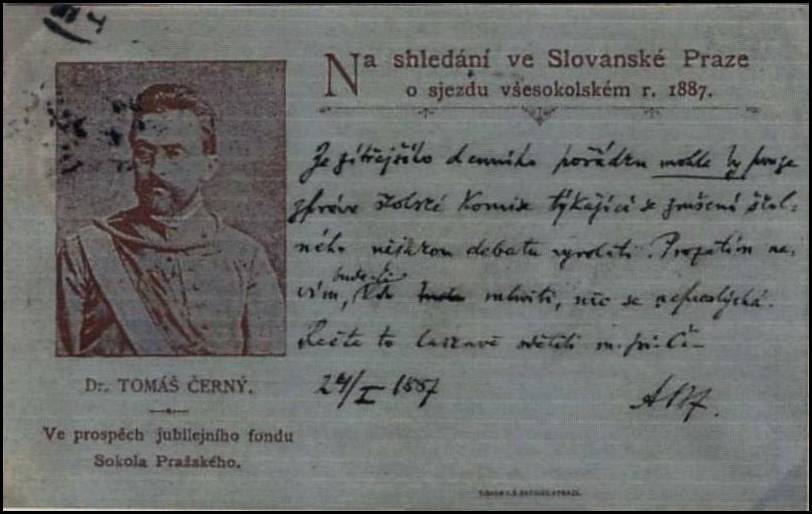 Na shledání ve Slovanské Praze
o sjezdu všesokolském r. 1887.
Ze zítřejšího denního pořádku mohla by pouze
zpráva školské komise týkající se zrušení škol-
ného nějakou debatu vyvolati. Prozatím ne-
vím, bude-li kdo mluviti, nic se neproslýchá.
Račte to laskavě sděliti
24/I 1887
Dr. TOMÁŠ ČERNÝ.
Ve prospěch jubilejního fondu
Sokola Pražského.